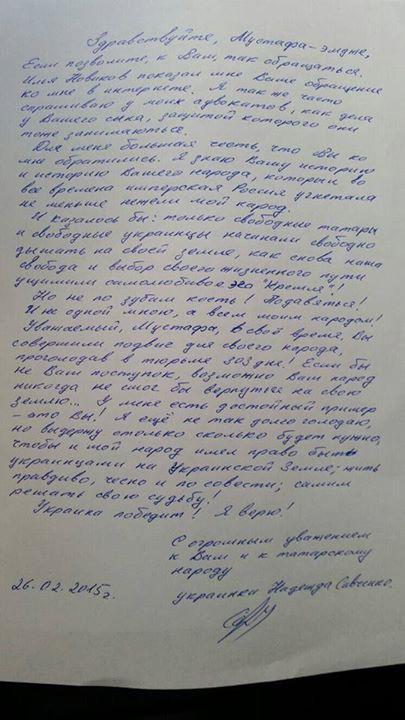 Здравствуйте, Мустафа-эмдже,
Если позволите, к Вам, так обращаться.
Илья Новиков показал мне Ваше обращение
ко мне в интернете. Я так же часто
спрашиваю у моих адвокатов, как дела
у Вашего сына, защитой которого они
тоже занимаються.
Для меня большая честь, что Вы ко
мне обратились. Я знаю Вашу историю
и историю Вашего народа, который во
все времена имперская Россия угнетала
не меньше нежели мой народ.
И казалось бы: только свободные татары
и свободные украинцы начинали свободно
дышать на своей земле, как снова наша
свобода и выбор своего жизненного пути
ущимили самолюбивое эго "Кремля"!
Но не по зубам кость! Подавяться!
И не одной мною, а всем моим народом!
Уважаемый, Мустафа, в своё время, Вы
совершили подвиг для своего народа,
проголодав в тюрьме 303 дня! Если бы
не Ваш поступок, возможно Ваш народ
никогда не смог бы вернуться на свою
землю... У меня есть достойный пример
- это Вы! Я ещё не так долго голодаю,
но выдержу столько сколько будет нужно,
чтобы и мой народ имел право быть
украинцами на Украинской Земле; жить
правдиво, чесно и по совести; самим
решать свою судьбу!
Украина победит! Я верю!
С огромным уважением
к Вам и к татарскому
народу
украинка Надежда Савченко.
26.02.2015г.